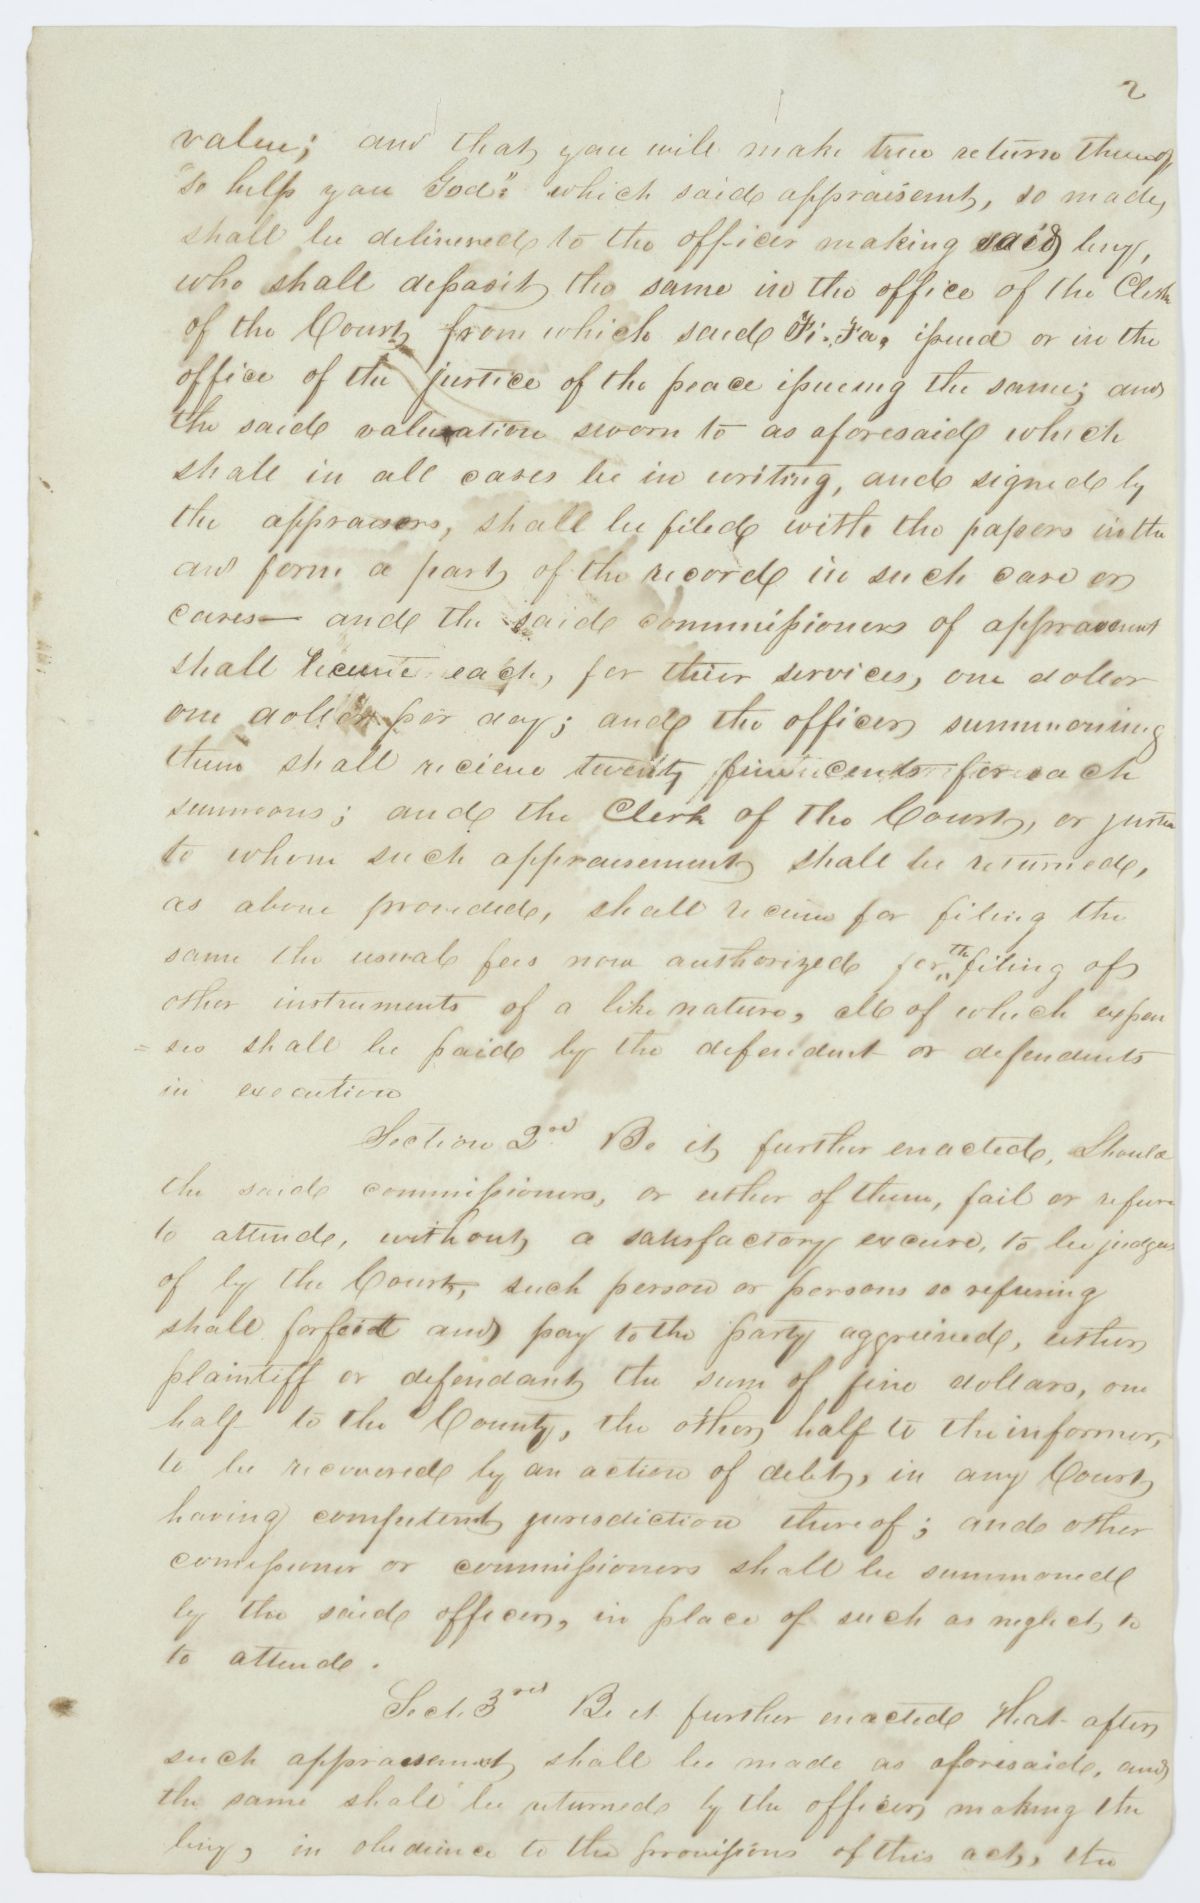 2
value; and that you will make true return thereof
"so help you God": which said appraisemt, so made,
shall be delivered to the officer making said levy,
who shall deposit the same in the office of the Clerk
of the Court from which said "Fi. Fa." issued or in the
office of the justice of the peace issueing the same; and
the said valuation sworn to as aforesaid which
shall in all cases be in writing, and signed by
the appraisers, shall be filed with the papers in the
and form a part of the record in such case or
cases— and the said commissioners of appraisment
shall receive each, for their services, one dollar
one dollar per day; and the officer summoning
them shall recieve twenty five cents for each
summons; and the Clerk of the Court, or justice
to whom such appraisement shall be returned,
as above provided, shall receive for filing the
same the usual fees now authorized for the filing of
other instruments of a like nature, all of which expen
= ses shall be paid by the defendant or defendents
in execution
Section 2nd Be it further enacted, Should
the said commissioners, or either of them, fail or refuse
to attend, without a satisfactory excuse, to be judged
of by the Court, such person or persons so refusing
shall forfeit and pay to the party aggrieved, either
plaintiff or defendant the sum of five dollars, one
half to the County, the other half to the informer,
to be recovered by an action of debt, in any Court
having competent jurisdiction thereof; and other
comissioner or commissioners shall be summoned
by the said officer, in place of such as neglect to
to attend.
Sect. 3rd Be it further enacted That after
such appraisement shall be made as aforesaid, and
the same shall be returned by the officer making the
levy, in obedience to the provissions of this act, the